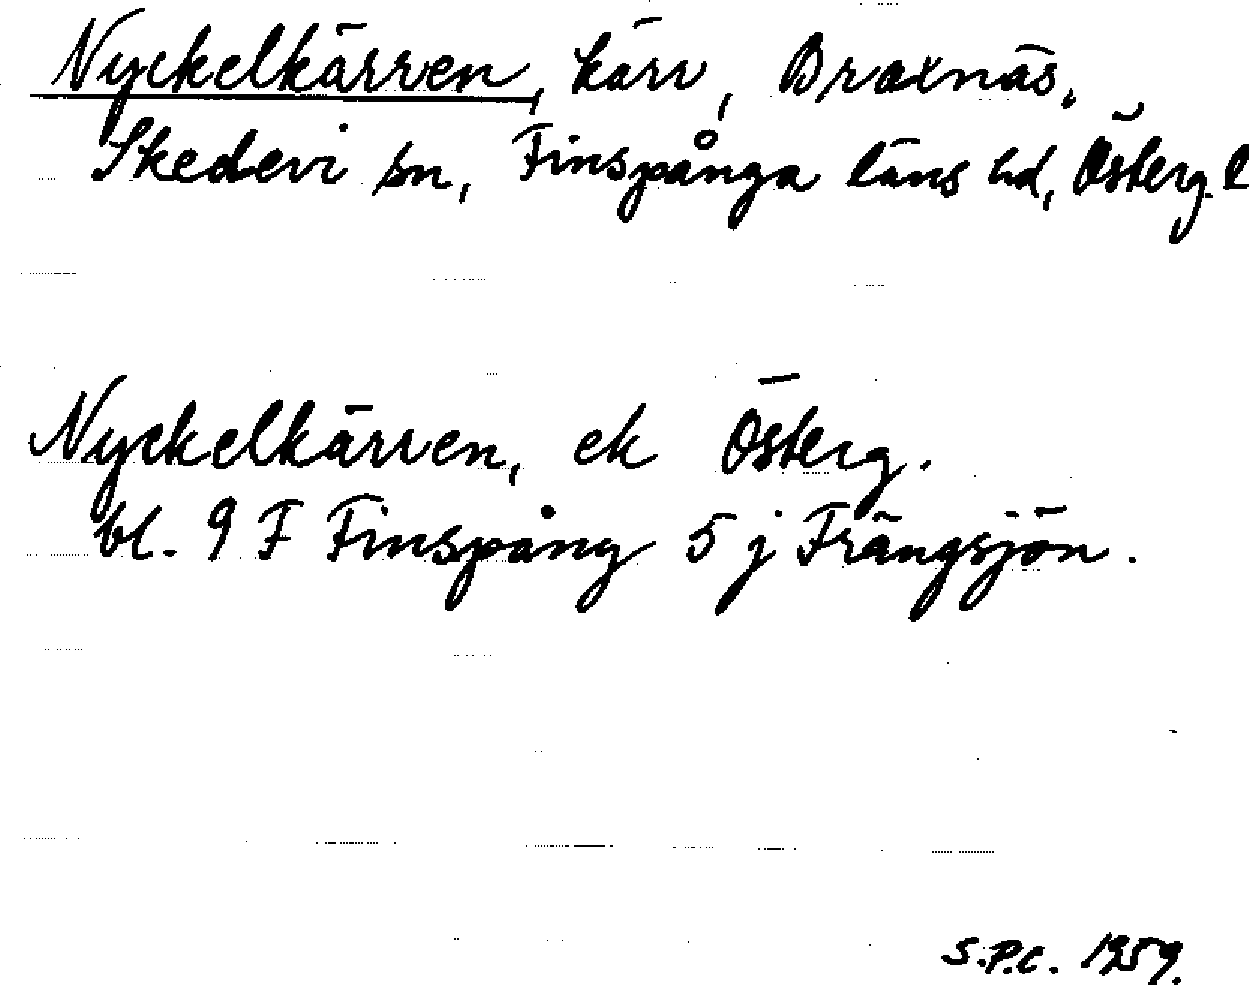 Nyckelkärren, kärr, Braxnäs,
Skedevi sn, Finspånga läns hd, Österg. l
Nyckelkärren, ek Österg.
bl. 9 F Finspång 5 j Frängsjön.
S.P.C. 1959.